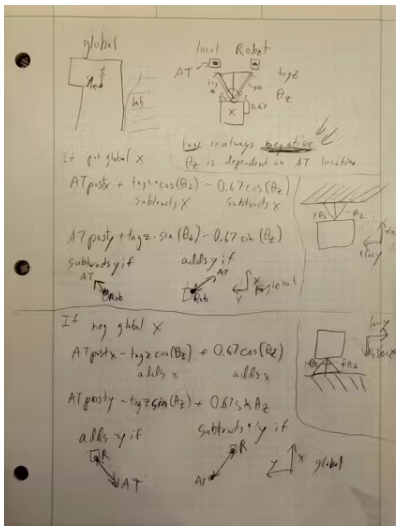 global
local Robot
AT
tagz
θz
x
0.67
lab
tagz is always negative
θz is dependent on AT location
If pos global X
ATpostx + tagz·cos(θz) - 0.67cos(θz)
subtracts x subtracts x
ATposty + tagz·sin(θz) - 0.67 sin(θz)
subtracts y if adds y if
AT
Rob
AT
Rob
x
y
global
+θz -θz
If neg global X
ATpostx - tagz cos(θz) + 0.67cos(θz)
adds x adds x
ATposty - tagz sin(θz) + 0.67 sin θz
adds y if subtracts y if
R
AT
R
AT
x
y
global
-θz +θz